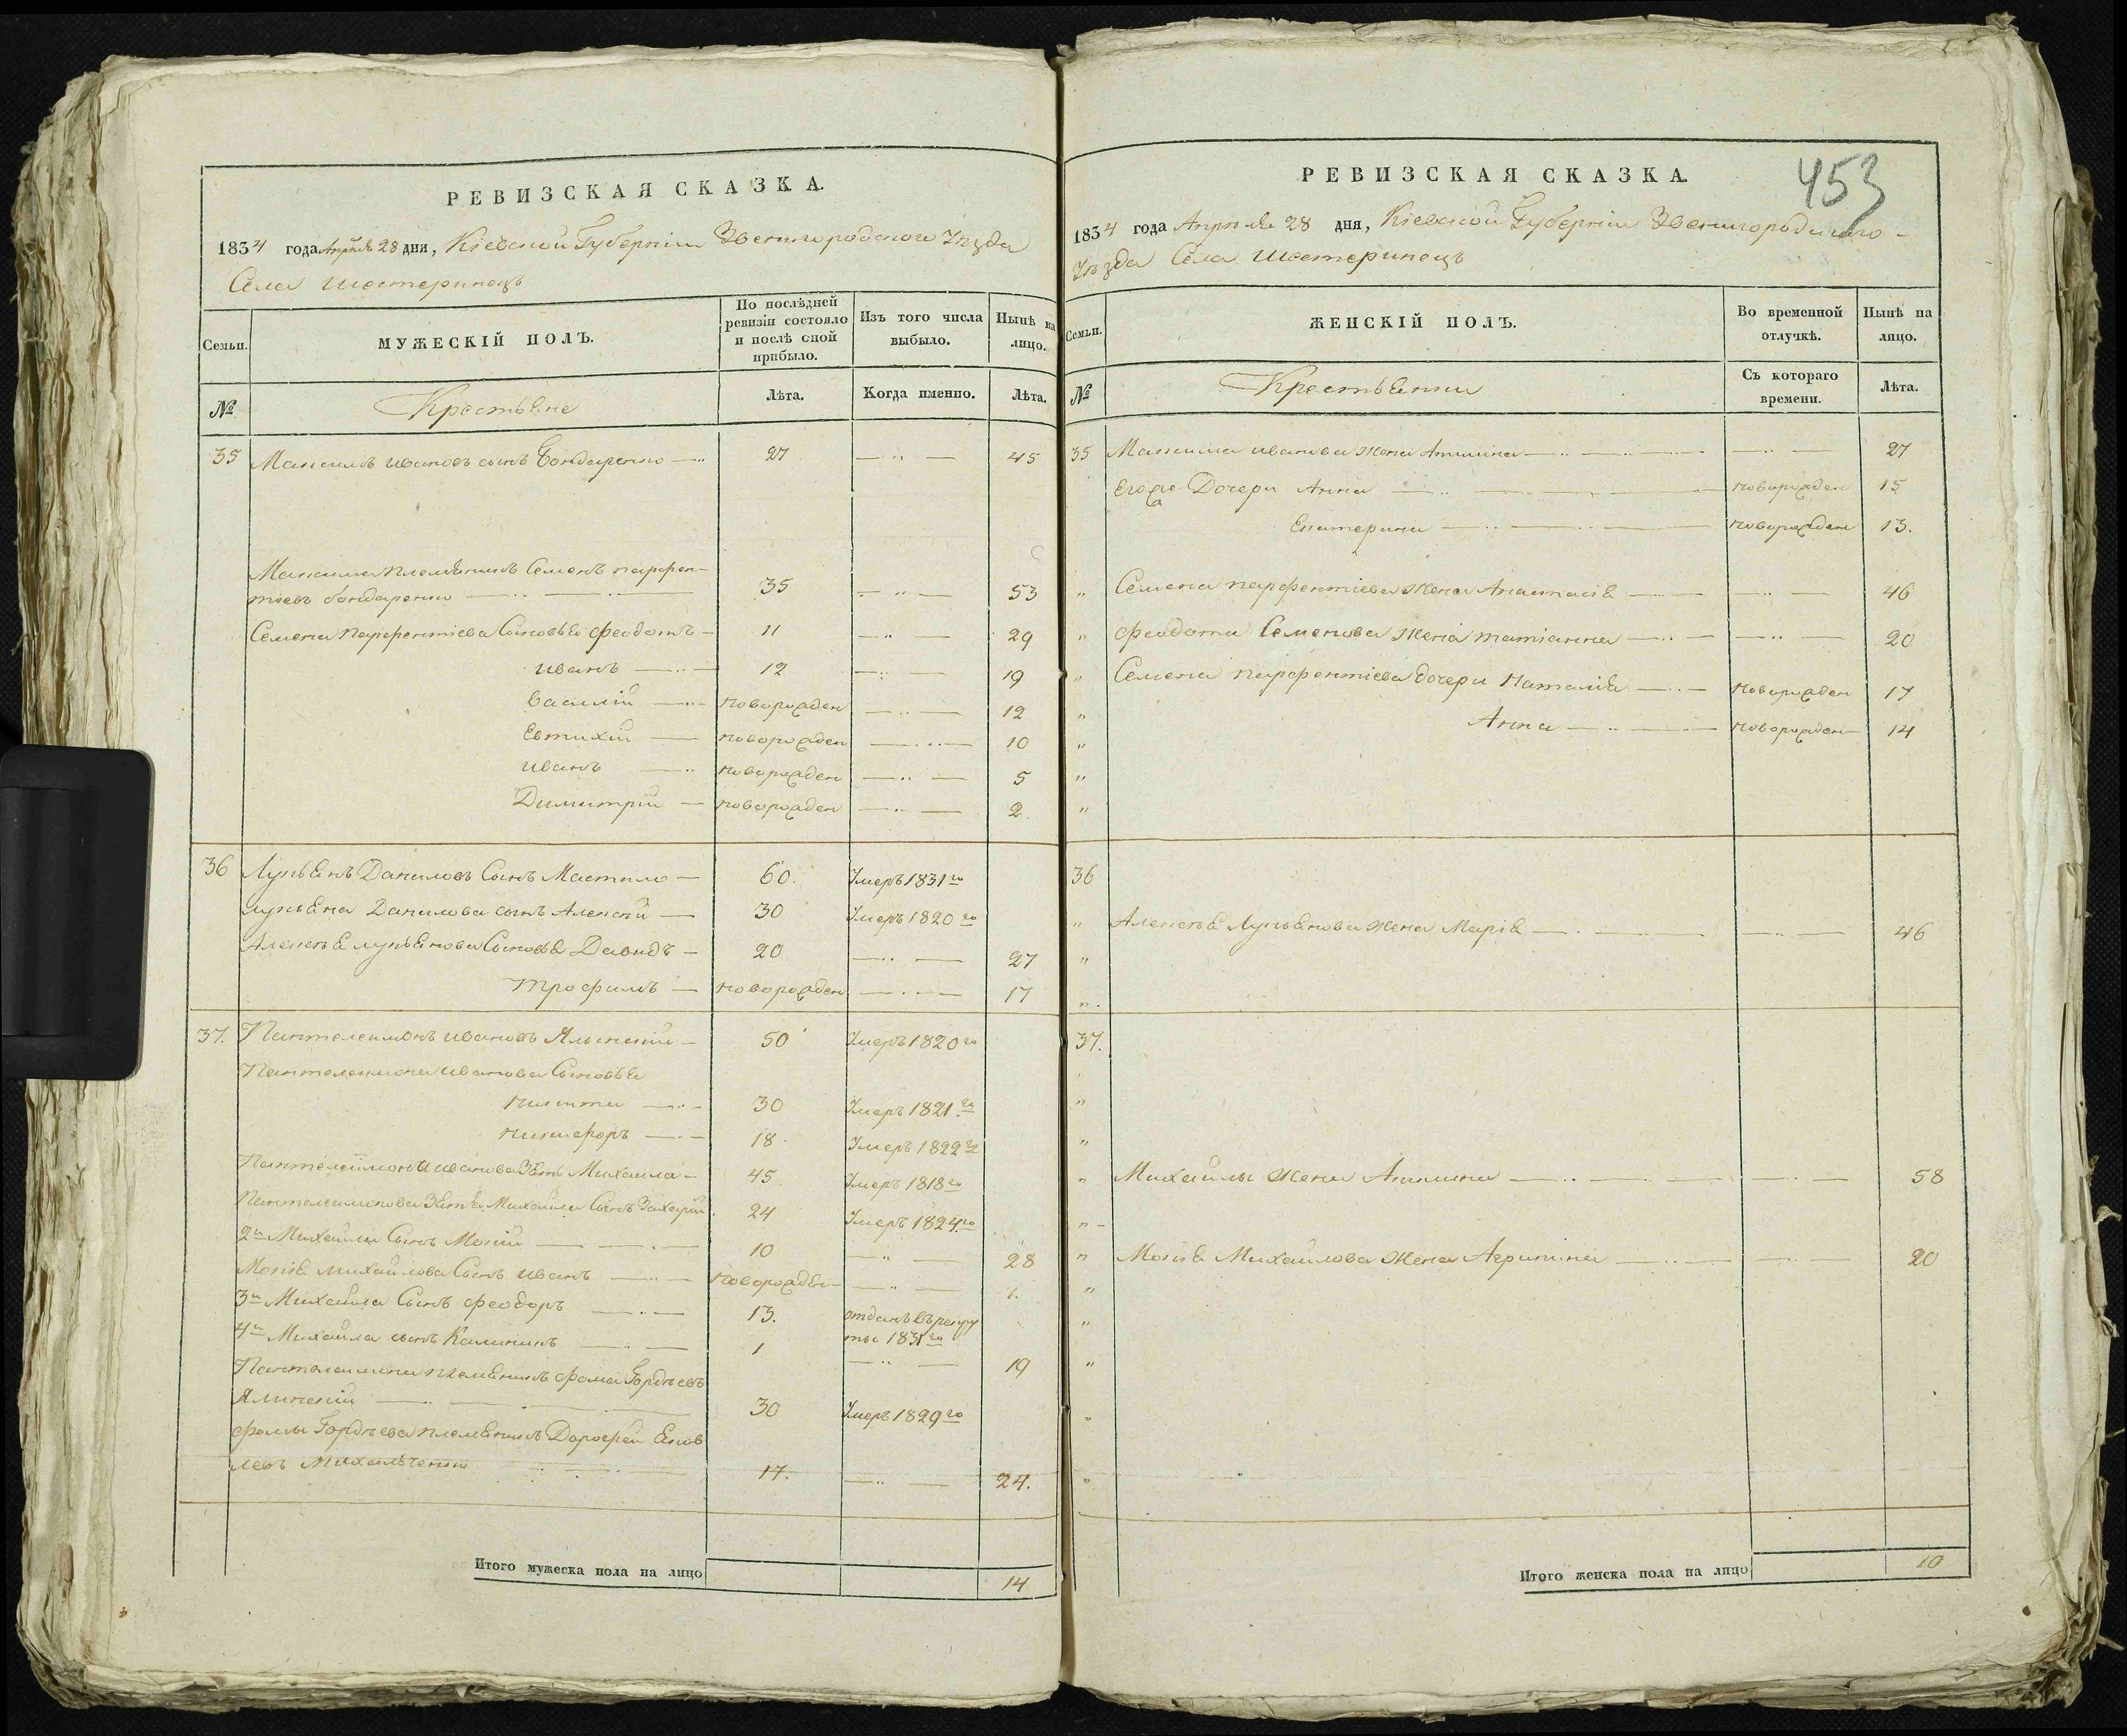 РЕВИЗСКАЯ СКАЗКА.
1834 года Апрѣля 28 дня, Кіевской Губерніи Звенигородского Уѣзда
Села Шестеринецъ
Семьи. МУЖЕСКІЙ ПОЛЪ. По послѣдней ревизіи состояло и послѣ оной прибыло. Изъ того числа выбыло. Нынѣ на лицо.
№ Крестьяне Лѣта. Когда именно. Лѣта.
35 Максимъ Ивановъ сынъ Бондаренко 27 45
Максима племянникъ Семенъ Парфен-
тіевъ Бондаренко 35 53
Семена Парфентіева Сыновья Феодотъ 11 29
Иванъ 12 19
Василій новорожден 12
Евтихій новорожден 10
Иванъ новорожден 5
Димитрій новорожден 2
36 Лукьянъ Даниловъ Сынъ Мостило 60. Умеръ 1831го
Лукьяна Данилова сынъ Алексѣй 30 Умеръ 1820го
Алексѣя Лукьянова Сыновья Давидъ 20 27
Трофимъ новорожден 17
37. Пантелеимонъ Ивановъ 50 Умеръ 1820го
Пантелеимона Иванова Сыновья
Никита 30 Умеръ 1821.го
Никифоръ 18. Умеръ 1822го
Пантелеимона Иванова Зять Михаила 45 Умеръ 1818го
Пантелеимонова Зятя Михаила Сынъ Захарій 24 Умеръ 1824.го
2й Михаила Сынъ Мокій 10 28
Мокія Михайлова Сынъ Иванъ новорожден 1.
3й Михаила Сынъ Феодоръ 13. отданъ въ рекру
ты 1831го
4й Михаила сынъ Калиникъ 1 19
Пантелеимона племяникъ Фома Гордѣевъ
30 Умеръ 1829го
Фомы Гордѣева племяникъ Дорофей Яков
левъ Михальченко 17. 24.
Итого мужеска пола на лицо 14
453
РЕВИЗСКАЯ СКАЗКА.
1834 года Апрѣля 28 дня, Кіевской Губерніи Звенигородского
Уѣзда Села Шестеринецъ
Семьи. ЖЕНСКІЙ ПОЛЪ. Во временной отлучкѣ. Нынѣ на лицо.
№ Крестьянки Съ котораго времени. Лѣта.
35 Максима Иванова жена Акилина 27
Его же Дочери Анна новорожден 15
Екатерина новорожден 13.
" Семена Парфентіева жена Анастасія 46
" Феодота Семенова жена Татіанна 20
" Семена Парфентіева дочери Наталія новорожден 17
" Анна новорожден 14
"
"
"
36
" Алексѣя Лукьянова жена Марія 46
"
"
37.
"
"
" Михайлы жена Акилина 58
"
" Мокія Михайлова жена Агрипина 20
"
"
"
"
"
Итого женска пола на лицо 10